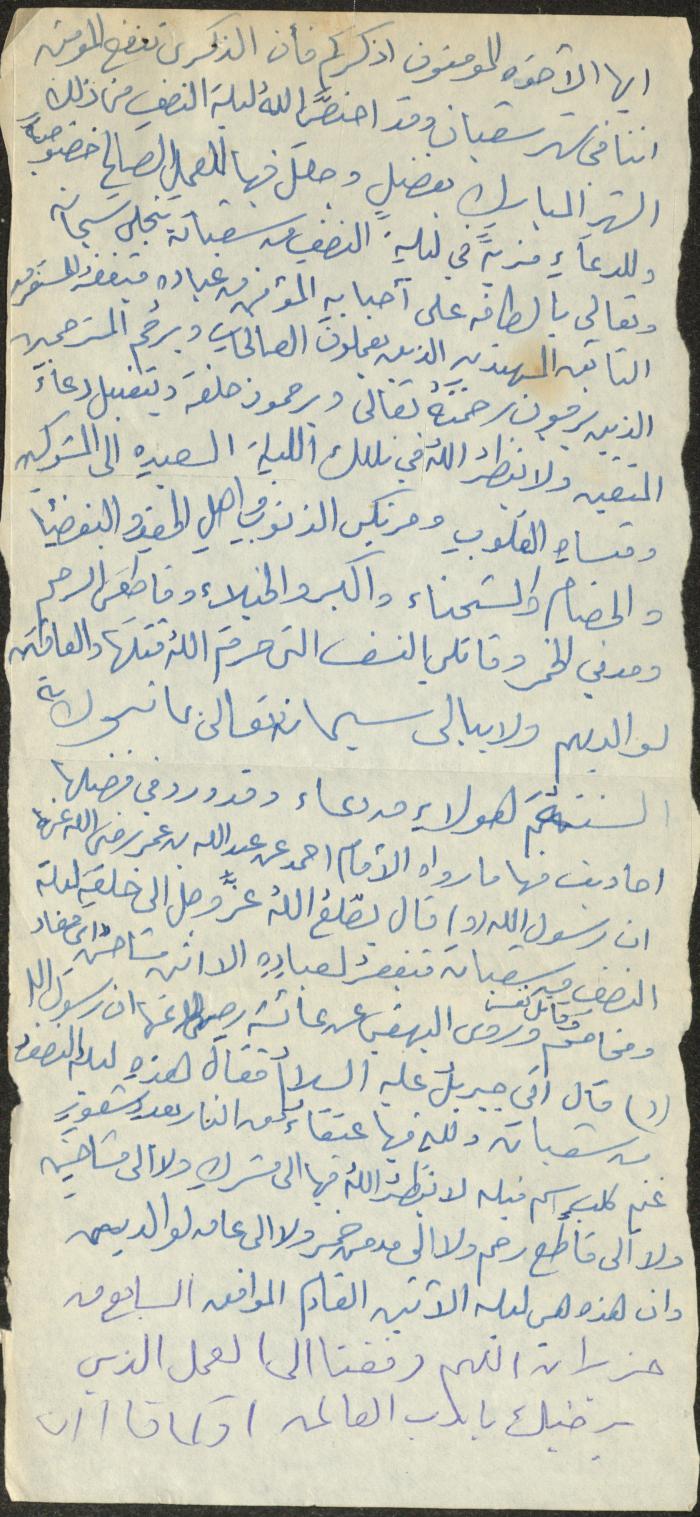 ايها الأخوه المومنون اذكركم فأن الذكرى تنفع المومنين
اننا في شهر شعبان وقد اختصَّ اللهُ ليلة النصف من ذلك
الشهر المبارك بفضلٍ وجعل فيها للعمل الصالح خصوصيةً
وللدعاءِ مزيةً في ليلة النصف من شعبان يتجلى سبحانه
وتعالى بالطافه على أحبابه المؤمنين من عباده فيغفر للمستغفرين
التائبين المهتدين الذين يعملون الصالحات ويرحُم المسترحمين
الذين يرجون رحمتَهُ تعالى ويرحمون خلقه ويتقبل دعاءَ
المتقين ولا ينظرُ اللهُ في تلك الليلة السعيده الى المشركين
وقساةِ القلوبِ ومرتكبي الذنوب واهلِ الحقد والبغضاءِ
والخصام والشحناء والكبر والخيلاء وقاطعي الرحم
ومدمني الخمر وقاتلي النفس التي حرم الله قتلها والعاقين
لوالديهم ولا يبالي سبحانه تعالى بما تتحرك به
السنتهُم هولاءِ من دعاء وقد ورد في فضلها
احاديث منها ما رواه الأمام احمد عن عبد الله بن عمر رضي الله عنهما
ان رسول الله (ص) قال يطّلعُ اللهُ عزَّ وجل الى خلقهِ ليلة
النصف من شعبان فيغفرُ لعبادهِ الا اثنين مشاحن اي معاد
ومخاصم وقاتل نفس وروى البيهقي عن عائشة رضي الله عنها ان رسول الله
(ص) قال أتى جبريلُ عليه السلام فقال هذهِ ليلة النصفُ
من شعبان ولله فيها عتقاءُ من النار بعدد شعورِ
غنم كلبٍ اسم قبيله لا ينظرُ اللهُ فيها الى مشركٍ ولا الى مشاحنٍ
ولا الى قاطع رحم ولا الى مدمن خمر ولا الى عاق لوالديه
وان هذه هي ليلة الأثنين القادم الموافق السابع من
حزيران اللهم وفقنا الى العمل الذي
يرضيك يا رب العالمين